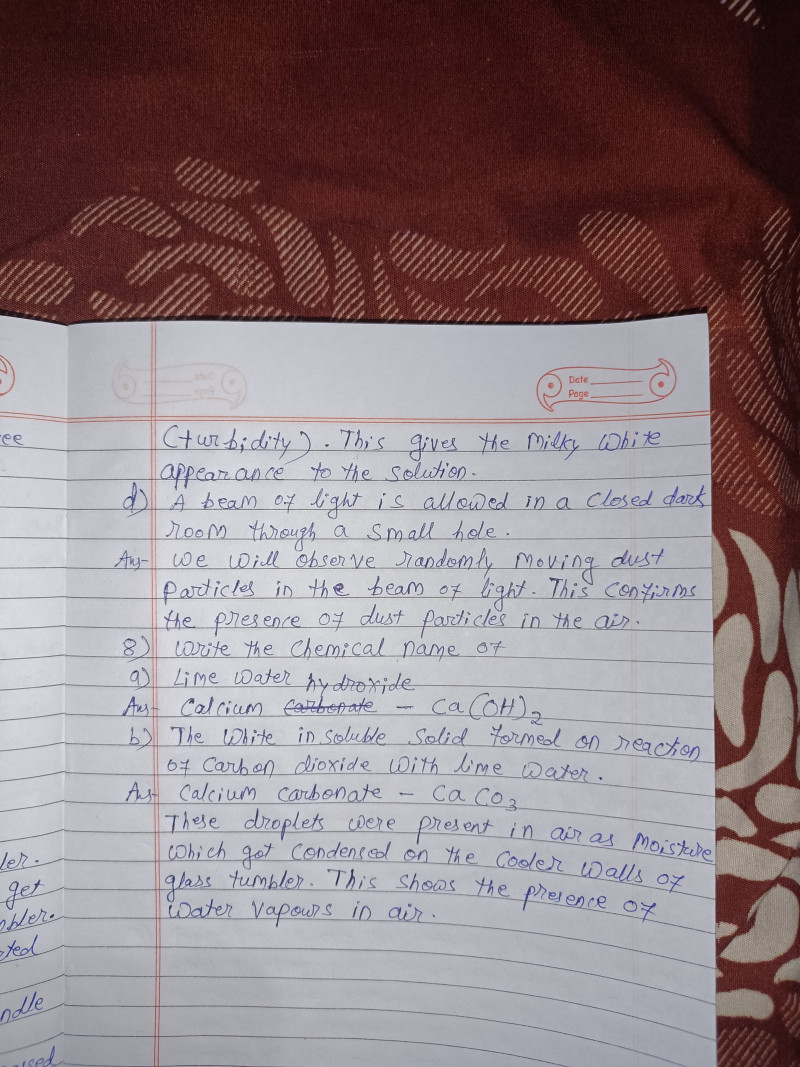 Date
Page
(turbidity). This gives the milky white
appearance to the solution.
d) A beam of light is allowed in a closed dark
room through a small hole.
Ans- We will observe randomly moving dust
particles in the beam of light. This confirms
the presence of dust particles in the air.
8) Write the chemical name of
a) Lime water
hydroxide
Ans- Calcium carbonate - Ca(OH)2
b) The white insoluble solid formed on reaction
of carbon dioxide with lime water.
Ans- Calcium carbonate - CaCO3
These droplets were present in air as moisture
which got condensed on the cooler walls of
glass tumbler. This shows the presence of
water vapours in air.
ee
ler.
get
mbler.
ted
ndle